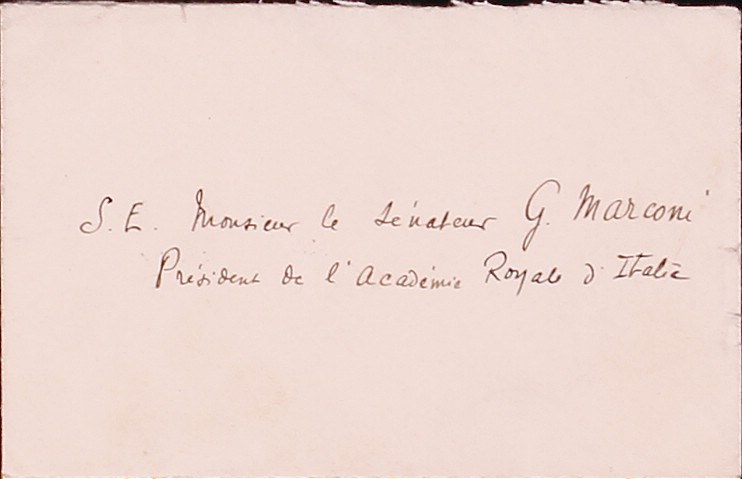 S. E. Monsieur le Sénateur G. Marconi
Président de l'Académie Royale d'Italie